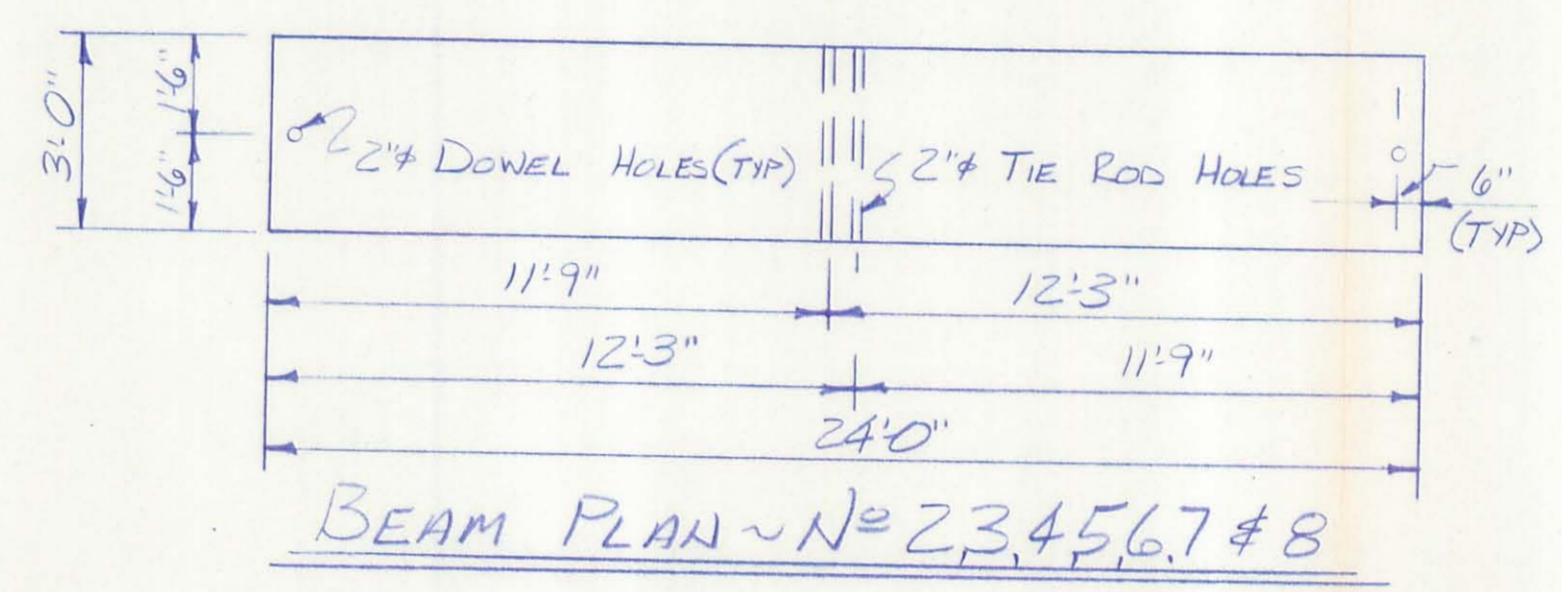 3'-0"
1'-6"
1'-6"
2"ϕ DOWEL HOLES (TYP)
2"ϕ TIE ROD HOLES
6"
(TYP)
11'-9"
12'-3"
12'-3"
11'-9"
24'-0"
BEAM PLAN ~ Nº 2,3,4,5,6,7 & 8